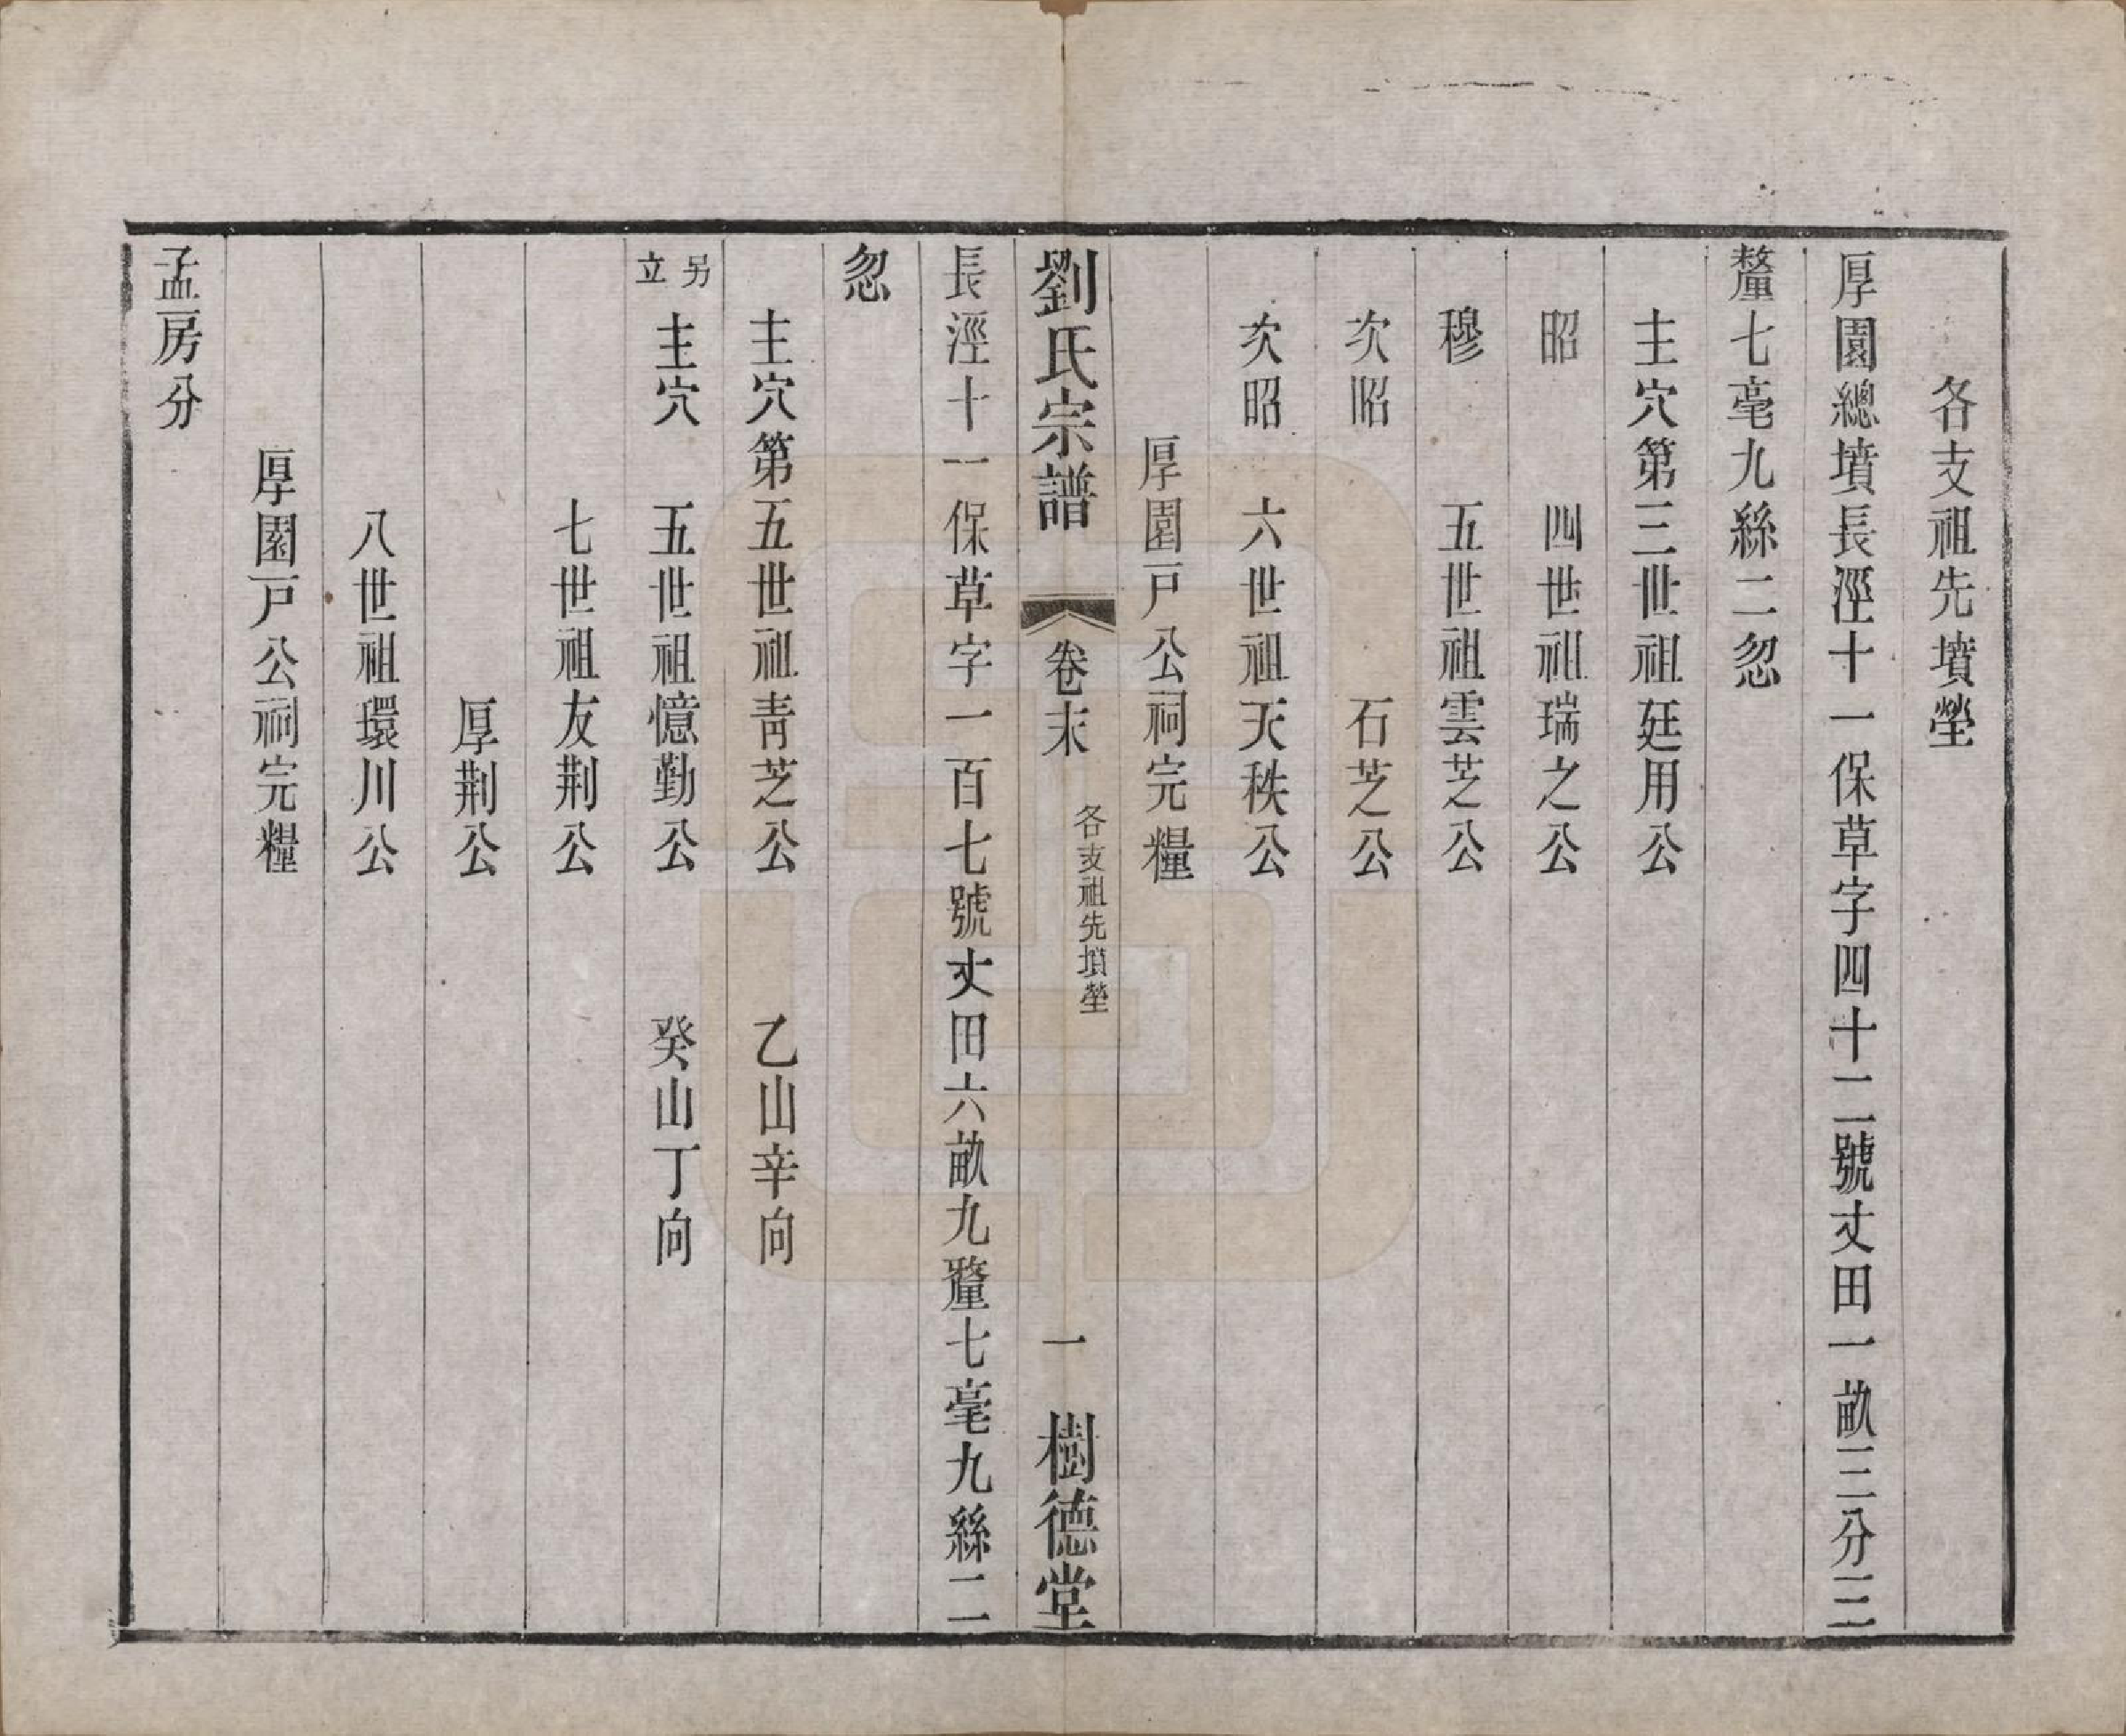 各支祖先墳塋
厚園總墳長涇十一保草字四十二號丈田一畝三分三
釐七毫九絲二忽
主穴第三世祖廷用公
昭 四世祖瑞之公
穆 五世祖雲芝公
次昭 石芝公
次昭 六世祖天秩公
厚園戶公祠完糧
劉氏宗譜 卷末 各支祖先墳塋 一 樹德堂
長涇十一保草字一百七號丈田六畝九釐七毫九絲二
忽
主穴第五世祖青芝公 乙山辛向
另立 主穴 五世祖憶勤公 癸山丁向
七世祖友荆公
厚荆公
八世祖環川公
厚園戶公祠完糧
孟房分